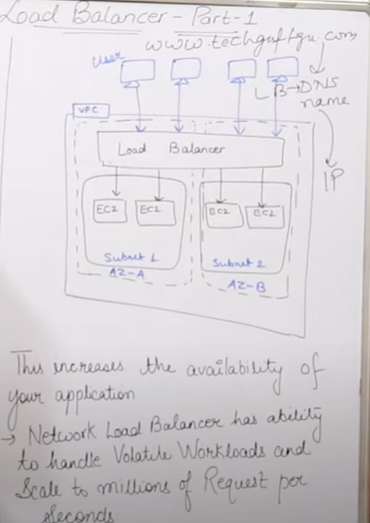 Load Balancer - Part-1
www.techguftgu.com
user
LB → DNS
name
VPC
IP
Load Balancer
EC2 EC2 EC2 EC2
Subnet 1 Subnet 2
AZ-A AZ-B
This increases the availability of
your application
→ Network Load Balancer has ability
to handle Volatile Workloads and
Scale to millions of Request per
Seconds